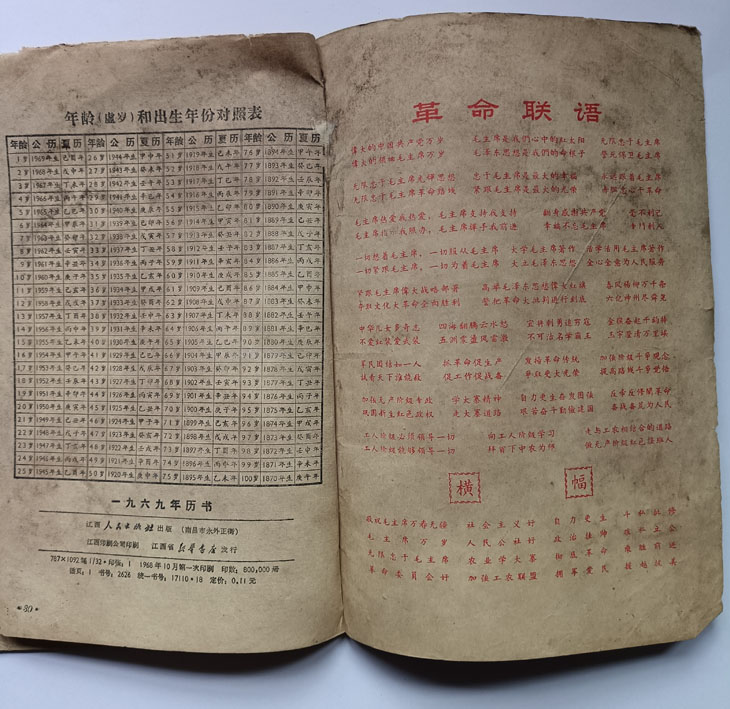 年龄(虚岁)和出生年份对照表
年龄 公历 夏历 年龄 公历 夏历 年龄 公历 夏历 年龄 公历 夏历
1岁 1969年生 己酉年 26岁 1944年生 甲申年 51岁 1919年生 己未年 76岁 1894年生 甲午年
2岁 1968年生 戊申年 27岁 1943年生 癸未年 52岁 1918年生 戊午年 77岁 1893年生 癸巳年
3岁 1967年生 丁未年 28岁 1942年生 壬午年 53岁 1917年生 丁巳年 78岁 1892年生 壬辰年
4岁 1966年生 丙午年 29岁 1941年生 辛巳年 54岁 1916年生 丙辰年 79岁 1891年生 辛卯年
5岁 1965年生 乙巳年 30岁 1940年生 庚辰年 55岁 1915年生 乙卯年 80岁 1890年生 庚寅年
6岁 1964年生 甲辰年 31岁 1939年生 己卯年 56岁 1914年生 甲寅年 81岁 1889年生 己丑年
7岁 1963年生 癸卯年 32岁 1938年生 戊寅年 57岁 1913年生 癸丑年 82岁 1888年生 戊子年
8岁 1962年生 壬寅年 33岁 1937年生 丁丑年 58岁 1912年生 壬子年 83岁 1887年生 丁亥年
9岁 1961年生 辛丑年 34岁 1936年生 丙子年 59岁 1911年生 辛亥年 84岁 1886年生 丙戌年
10岁 1960年生 庚子年 35岁 1935年生 乙亥年 60岁 1910年生 庚戌年 85岁 1885年生 乙酉年
11岁 1959年生 己亥年 36岁 1934年生 甲戌年 61岁 1909年生 己酉年 86岁 1884年生 甲申年
12岁 1958年生 戊戌年 37岁 1933年生 癸酉年 62岁 1908年生 戊申年 87岁 1883年生 癸未年
13岁 1957年生 丁酉年 38岁 1932年生 壬申年 63岁 1907年生 丁未年 88岁 1882年生 壬午年
14岁 1956年生 丙申年 39岁 1931年生 辛未年 64岁 1906年生 丙午年 89岁 1881年生 辛巳年
15岁 1955年生 乙未年 40岁 1930年生 庚午年 65岁 1905年生 乙巳年 90岁 1880年生 庚辰年
16岁 1954年生 甲午年 41岁 1929年生 己巳年 66岁 1904年生 甲辰年 91岁 1879年生 己卯年
17岁 1953年生 癸巳年 42岁 1928年生 戊辰年 67岁 1903年生 癸卯年 92岁 1878年生 戊寅年
18岁 1952年生 壬辰年 43岁 1927年生 丁卯年 68岁 1902年生 壬寅年 93岁 1877年生 丁丑年
19岁 1951年生 辛卯年 44岁 1926年生 丙寅年 69岁 1901年生 辛丑年 94岁 1876年生 丙子年
20岁 1950年生 庚寅年 45岁 1925年生 乙丑年 70岁 1900年生 庚子年 95岁 1875年生 乙亥年
21岁 1949年生 己丑年 46岁 1924年生 甲子年 71岁 1899年生 己亥年 96岁 1874年生 甲戌年
22岁 1948年生 戊子年 47岁 1923年生 癸亥年 72岁 1898年生 戊戌年 97岁 1873年生 癸酉年
23岁 1947年生 丁亥年 48岁 1922年生 壬戌年 73岁 1897年生 丁酉年 98岁 1872年生 壬申年
24岁 1946年生 丙戌年 49岁 1921年生 辛酉年 74岁 1896年生 丙申年 99岁 1871年生 辛未年
25岁 1945年生 乙酉年 50岁 1920年生 庚申年 75岁 1895年生 乙未年 100岁 1870年生 庚午年
一九六九年历书
江西人民出版社出版 (南昌市永外正街)
江西印刷公司印刷 江西省新华书店发行
787×1092 1/32·印张:1 1968年10月第一次印刷 印数:800,000册
插页:1 书号:2626 统一书号:17110·18 定价:0.11元
·80·
革命联语
伟大的中国共产党万岁 毛主席是我们心中的红太阳 无限忠于毛主席
伟大的领袖毛主席万岁 毛泽东思想是我们的命根子 誓死保卫毛主席
无限忠于毛主席光辉思想 忠于毛主席是最大的幸福 永远跟着毛主席
无限忠于毛主席革命路线 紧跟毛主席是最大的光荣
毛主席热爱我热爱,毛主席支持我支持 翻身感谢共产党
毛主席指示我照办,毛主席挥手我前进 幸福不忘毛主席 专门利人
一切想着毛主席,一切服从毛主席 大学毛主席著作 活学活用毛主席著作
一切紧跟毛主席,一切为着毛主席 大立毛泽东思想 全心全意为人民服务
紧跟毛主席伟大战略部署 高举毛泽东思想伟大红旗 春风杨柳万千条
夺取文化大革命全面胜利 誓把革命大批判进行到底 六亿神州尽舜尧
中华儿女多奇志 四海翻腾云水怒 宜将剩勇追穷寇 金猴奋起千钧棒
不爱红装爱武装 五洲震荡风雷激 不可沽名学霸王 玉宇澄清万里埃
军民团结如一人 抓革命促生产 发扬革命传统 加强阶级斗争观念
试看天下谁能敌 促工作促战备 争取更大光荣 提高路线斗争觉悟
加强无产阶级专政 学大寨精神 自力更生奋发图强
巩固新生红色政权 走大寨道路 艰苦奋斗勤俭建国 备战备荒为人民
工人阶级必须领导一切 向工人阶级学习 走与工农相结合的道路
工人阶级能够领导一切 拜贫下中农为师 做无产阶级红色接班人
横幅
敬祝毛主席万寿无疆 社会主义好 自力更生 斗私批修
毛主席万岁 人民公社好 政治挂帅
无限忠于毛主席 农业学大寨 彻底革命 乘胜前进
革命委员会好 加强工农联盟 拥军爱民 援越抗美